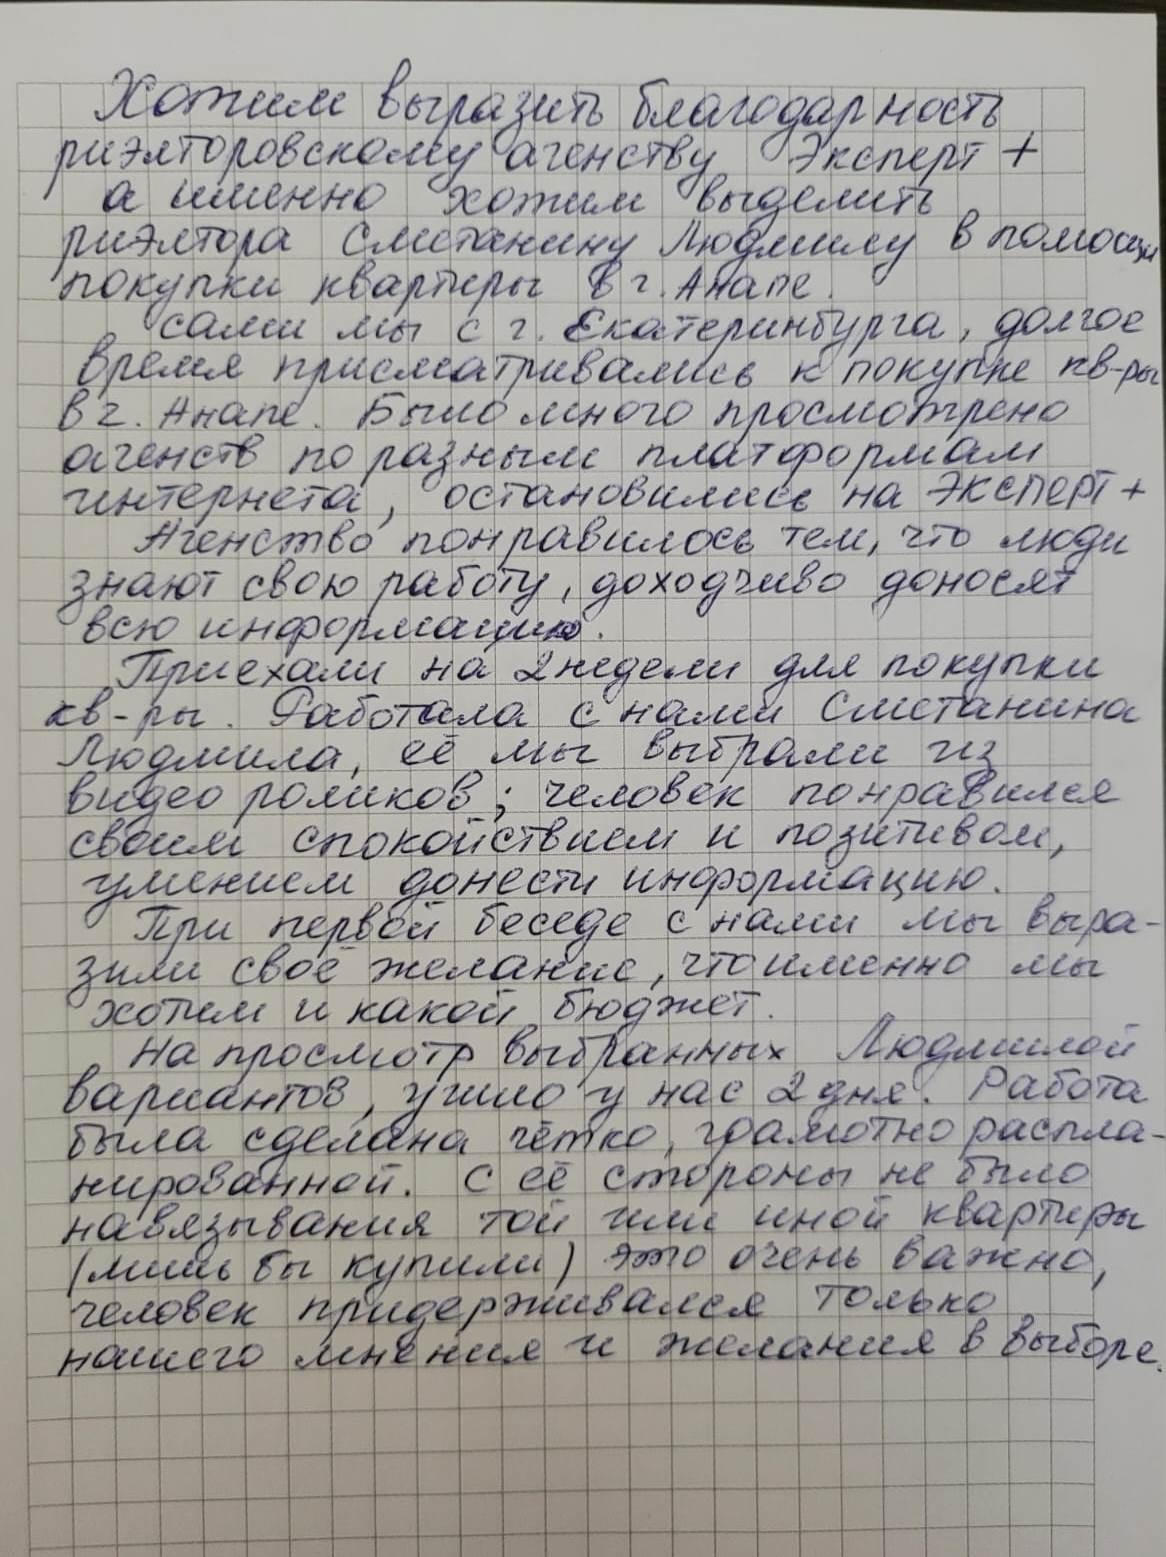 Хотим выразить благодарность
риэлторовскому агенству Эксперт +
а именно хотим выделить
риэлтора Сметанину Людмилу в помощи
покупки квартиры в г. Анапе.
сами мы с г. Екатеринбурга, долгое
время присматривались к покупке кв-ры
в г. Анапе. Было много просмотрено
агенств по разным платформам
интернета, остановились на Эксперт +
Агенство понравилось тем, что люди
знают свою работу, доходчиво доносят
всю информацию.
Приехали на 2 недели для покупки
кв-ры. Работала с нами Сметанина
Людмила, её мы выбрали из
видео роликов; человек понравился
своим спокойствием и позитивом,
умением донести информацию.
При первой беседе с нами мы выра-
зили своё желание, что именно мы
хотим и какой бюджет.
На просмотр выбранных Людмилой
вариантов, ушло у нас 2 дня. Работа
была сделана чётко, грамотно распла-
нированной. С её стороны не было
навязывания той или иной квартиры
(лишь бы купили) это очень важно,
человек придерживался только
нашего мнения и желания в выборе.